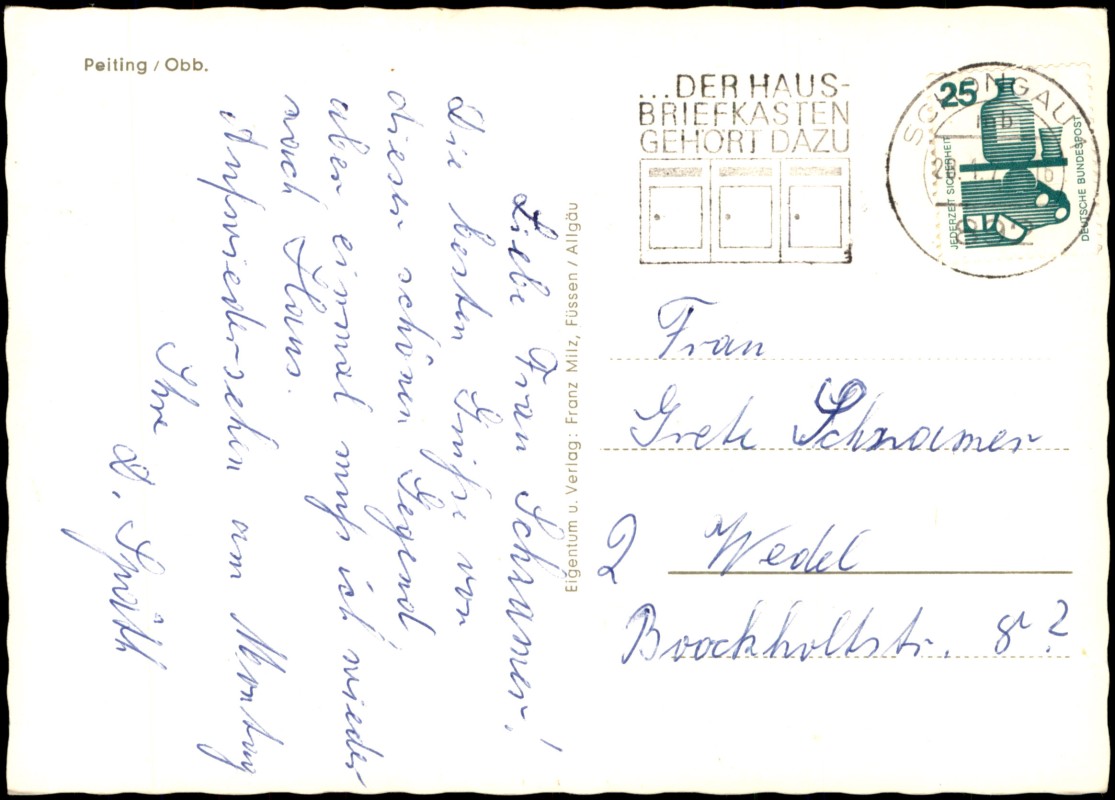 Peiting / Obb.
Liebe Frau Schramer!
Die besten Grüße von
dieser schönen Gegend,
aber einmal muß ich wieder
nach Haus.
Aufwiedersehen am Montag
Ihre
D. Späth
Eigentum u. Verlag: Franz Milz, Füssen / Allgäu
...DER HAUS-
BRIEFKASTEN
GEHÖRT DAZU
SCHONGAU
25
JEDERZEIT SICHERHEIT
DEUTSCHE BUNDESPOST
Frau
Grete Schramer
2 Wedel
Boockholtstr.